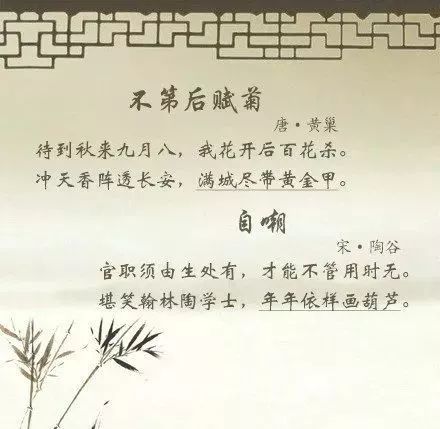 不第后赋菊
唐·黄巢
待到秋来九月八，我花开后百花杀。
冲天香阵透长安，满城尽带黄金甲。
自嘲
宋·陶谷
官职须由生处有，才能不管用时无。
堪笑翰林陶学士，年年依样画葫芦。